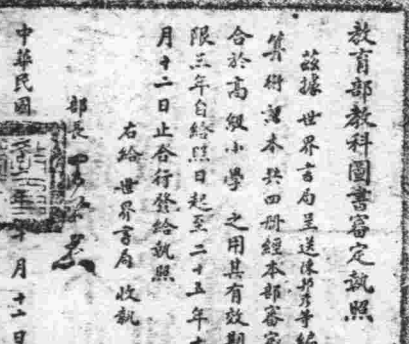 教育部教科圖書審定執照
茲據世界書局呈送陳邦彥等編
算術課本共四冊經本部審定
合於高級小學之用其有效期
限三年自給照日起至二十五年十
月十二日止合行發給執照
右給世界書局收執
部長
中華民國 年 月十二日